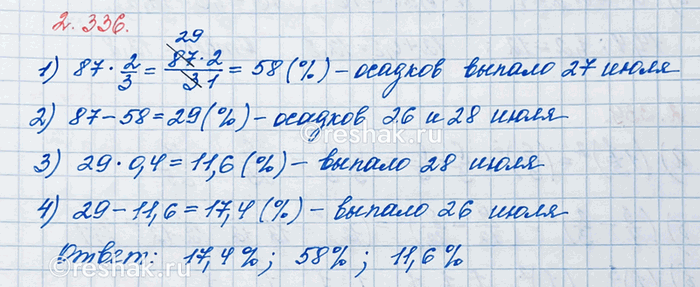 2.336.
29
1) 87 · 2/3 = 87·2/3 1 = 58 (%) – осадков выпало 27 июля
2) 87 – 58 = 29 (%) – осадков 26 и 28 июля
©reshak.ru
3) 29 · 0,4 = 11,6 (%) – выпало 28 июля
4) 29 – 11,6 = 17,4 (%) – выпало 26 июля
Ответ: 17,4 %; 58 %; 11,6 %
©reshak.ru